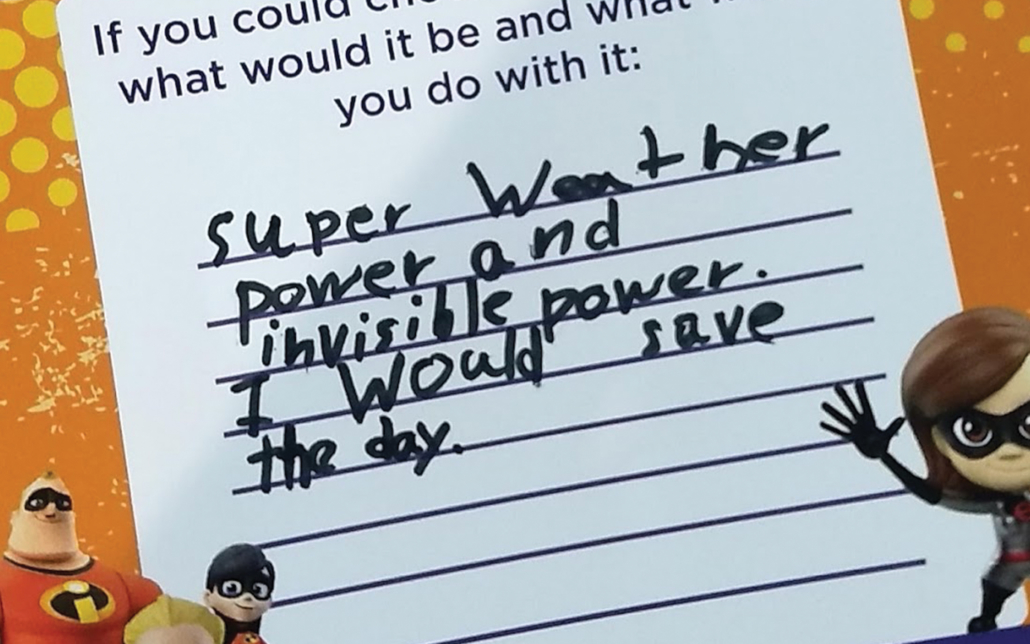 If you could
what would it be and what
you do with it:
super Weather
power and
invisible power.
I Would save
the day.